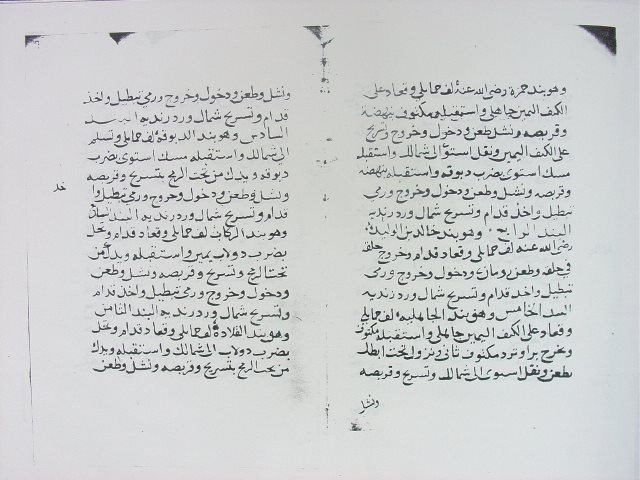 وهو بند حمزة رضي الله عنه لف حمايلي وقعاد على
الكتف اليمين جاهلي واستقبله مكتوف بنهضة
وقربصه ونشل وطعن ودخول وخروج وتسريح
على الكتف اليمين ونقل استوى الى شمالك واستقبله
مسك استوى بضرب دبوقه واستقبله بنهضه
وقربصه ونشل وطعن ودخول وخروج ورمي
تبطيل واخذ قدام وتسريح شمال ورد رنديه
البند الرابع وهو بند خالد بن الوليد
رضى الله عنه لف حمايلي وقعاد قدام وخروج حلقه
في حلقه وطعن رومان ودخول وخروج ورمى
تبطيل واخذ قدام وتسريح شمال ورد رنديه
البند الخامس وهو بند الجاهليه لف حمايلي
وقعاد على الكتف اليمين جاهلي واستقبله مكتوف
وتخرج برا وترد مكتوف ثاني وتزول تحت ابطك
بطعن ونقل استوى الى شمالك وتسريح وقربصه
ونشل
ونشل وطعن ودخول وخروج ورمي تبطيل واخذ
قدام وتسريح شمال ورد رنديه البند
السادس وهو بند الدبوقه لف حمايلي وتسلم
الى شمالك واستقبله مسك استوى بضرب
دبوقه وبدك من تحت الرمح بتسريح وقربصه
ونشل وطعن ودخول وخروج ورمي تبطيل وا
قدام وتسريح شمال ورد رنديه البند
وهو بند الركاب لف حمايلي وقعاد قدام
بضرب دولاب يمين واستقبله وبدك من
تحت الرمح وتسريح وقربصه ونشل وطعن
ودخول وخروج ورمي تبطيل واخذ قدام
وتسريح شمال ورد رنديه البند الثامن
وهو بند القلادة لف حمايلي وقعاد قدام
بضرب دولاب الى شمالك واستقبله وبدك
من تحت الرمح بتسريح وقربصه ونشل وطعن